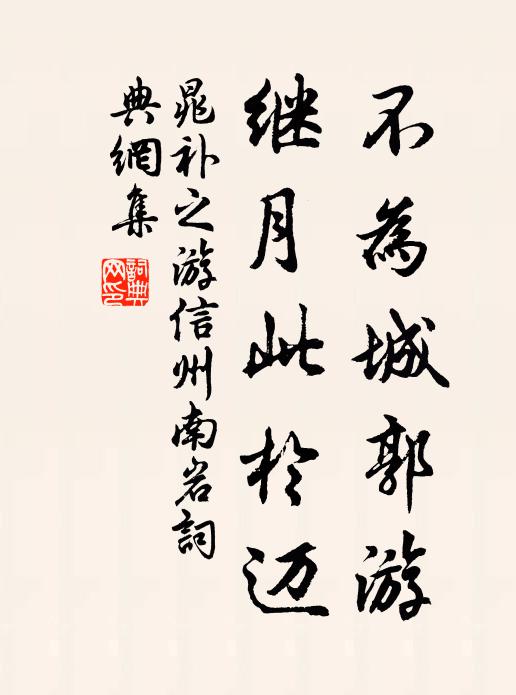 不為城郭游
继月此於迈
晁补之游信州南岩詞
典網集
詞典
网印